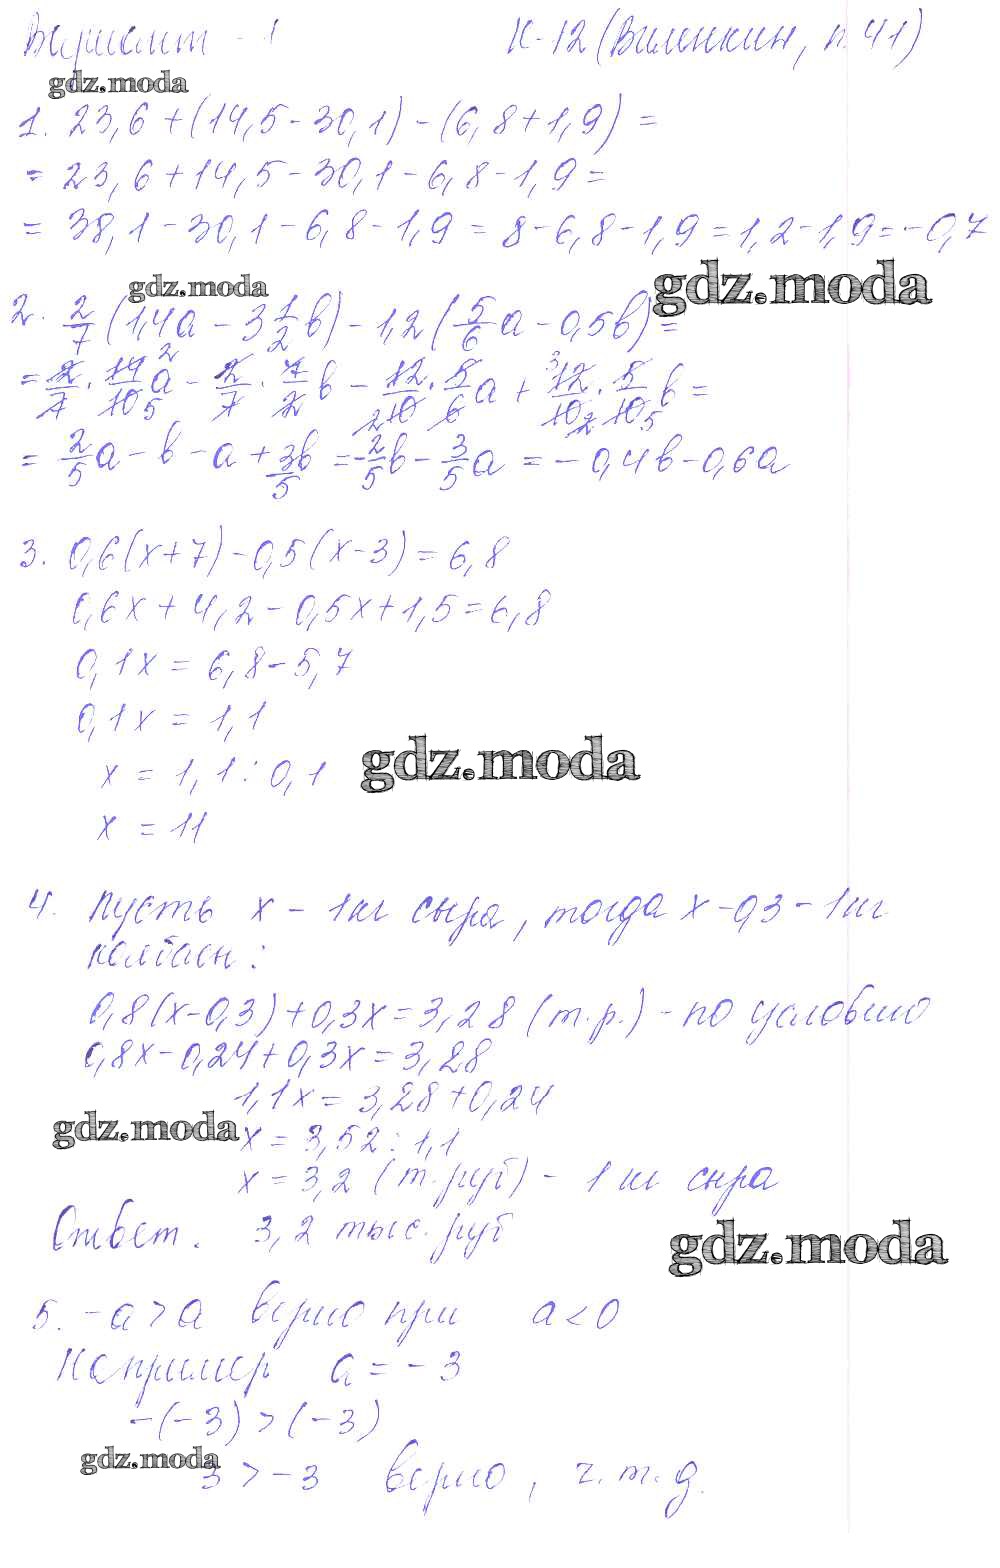 Вариант - 1 К-12 (Виленкин, п. 41)
gdz.moda
1. 23,6 + (14,5 - 30,1) - (6,8 + 1,9) =
= 23,6 + 14,5 - 30,1 - 6,8 - 1,9 =
= 38,1 - 30,1 - 6,8 - 1,9 = 8 - 6,8 - 1,9 = 1,2 - 1,9 = -0,7
gdz.moda gdz.moda
2. 2/7 (1,4a - 3 1/2 b) - 1,2 (5/6 a - 0,5b) =
= 2/7 · 14/10 a - 2/7 · 7/2 b - 12/10 · 5/6 a + 12/10 · 5/10 b =
= 2/5 a - b - a + 3b/5 = -2/5 b - 3/5 a = -0,4b - 0,6a
3. 0,6(x + 7) - 0,5(x - 3) = 6,8
0,6x + 4,2 - 0,5x + 1,5 = 6,8
0,1x = 6,8 - 5,7
0,1x = 1,1
x = 1,1 : 0,1
gdz.moda
x = 11
4. Пусть x - 1кг сыра, тогда x - 0,3 - 1кг
колбасы:
0,8(x - 0,3) + 0,3x = 3,28 (т.р.) - по условию
0,8x - 0,24 + 0,3x = 3,28
1,1x = 3,28 + 0,24
gdz.moda
x = 3,52 : 1,1
x = 3,2 (т. руб) - 1 кг сыра
Ответ. 3,2 тыс. руб
gdz.moda
5. -a > a верно при a < 0
Например a = -3
-(-3) > (-3)
gdz.moda
3 > -3 верно, ч.т.д.